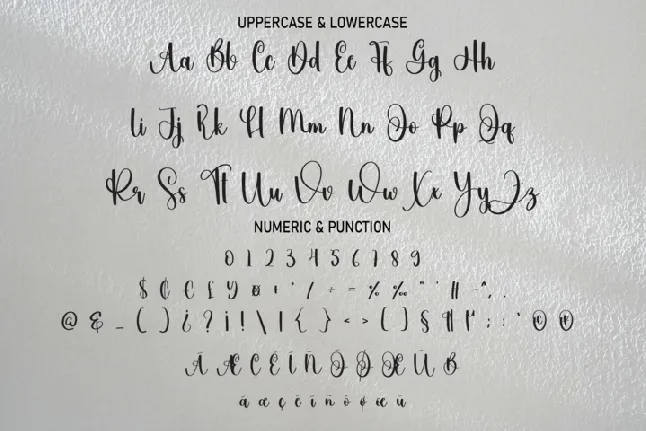 UPPERCASE & LOWERCASE
Aa Bb Cc Dd Ee Ff Gg Hh
Ii Jj Kk Ll Mm Nn Oo Pp Qq
Rr Ss Tt Uu Vv Ww Xx Yy Zz
NUMERIC & PUNCTION
0 1 2 3 4 5 6 7 8 9
$ ¢ € £ ¥ ¤ + ' / ÷ = % ‰ " ' ||
@ & _ ( ) ¿ ? ¡ ! \ | { } < > ( ) § ¶ : ; © ®
Ä Æ Ç Ë Ï Ñ Ö Ø Œ Ü ß
ä æ ç ë ï ñ ö ø œ ü